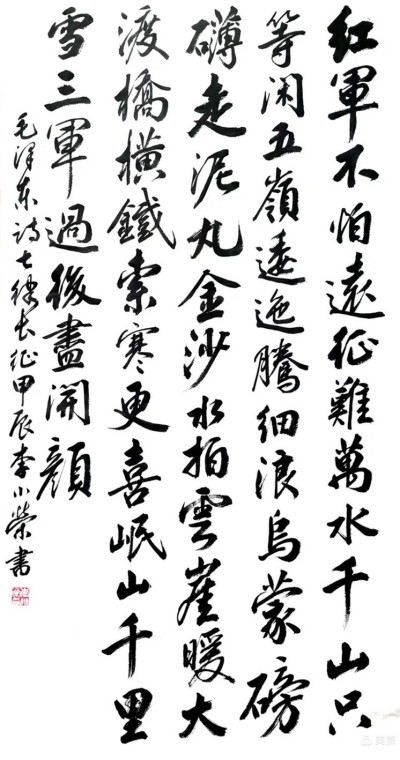 紅軍不怕遠征難萬水千山只
等闲五嶺逶迤騰細浪烏蒙磅
礴走泥丸金沙水拍雲崖暖大
渡橋橫鐵索寒更喜岷山千里
雪三軍過後盡開顔
毛泽东诗七律长征甲辰李小榮書
美篇